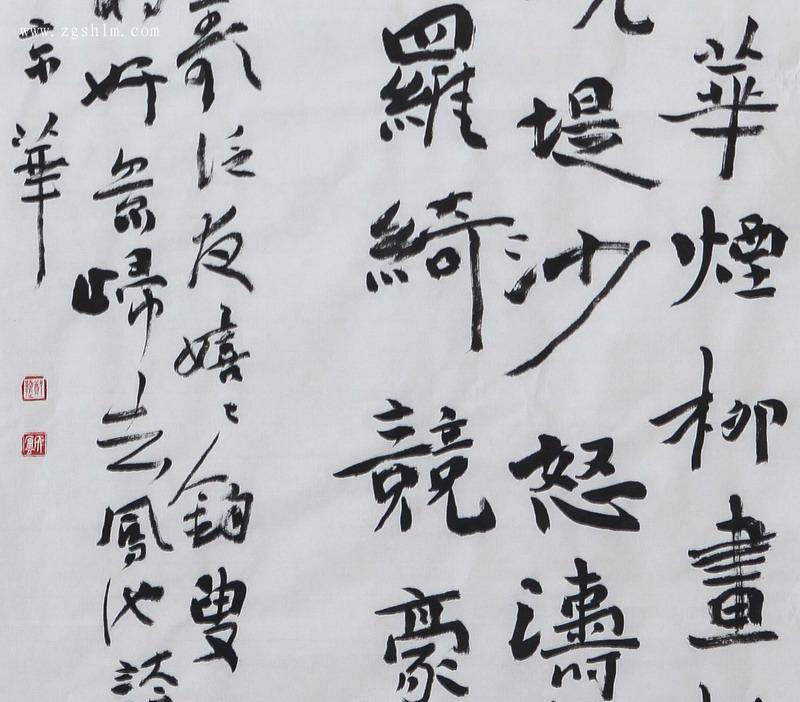 www.zgshlm.com
華煙柳畫
堤沙怒濤
羅綺競豪
歌泛夜嬉々釣叟
好景歸去鳳池誇
華